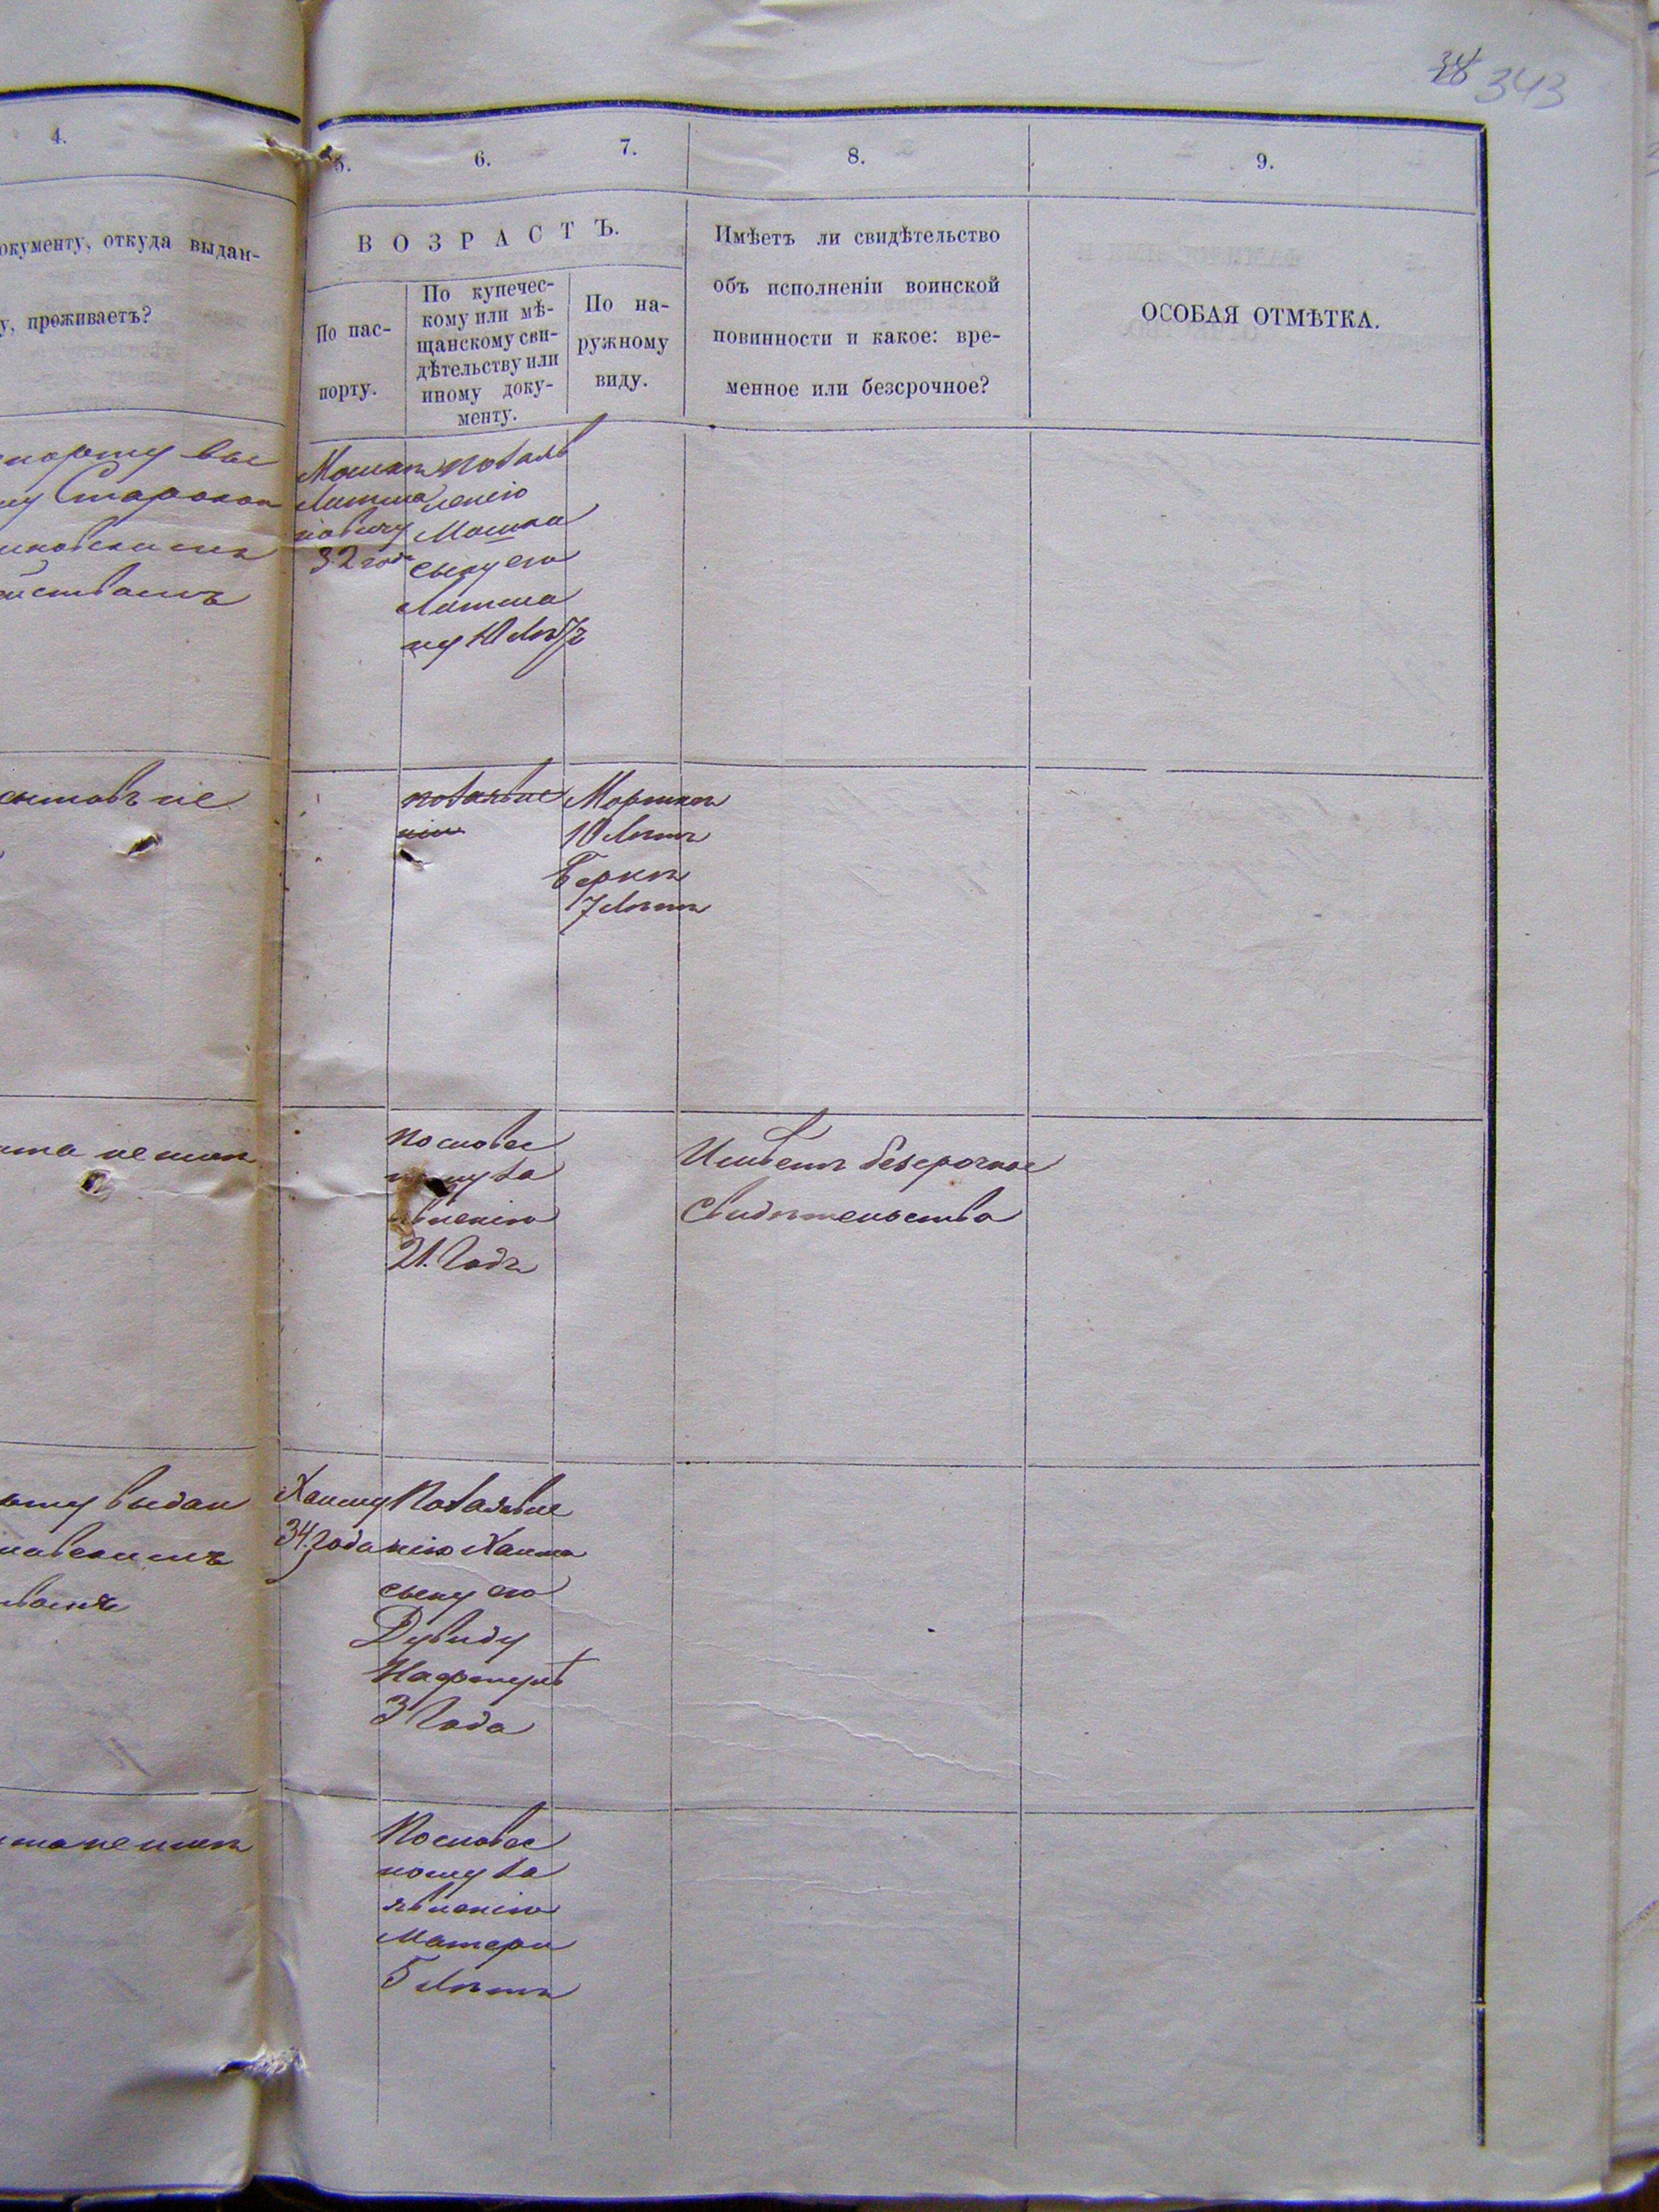 38 343
4.
5.
6.
7.
8.
9.
окументу, откуда выдан-
у, проживаетъ?
ВОЗРАСТЪ.
По пас-
порту.
По купечес-
кому или мѣ-
щанскому сви-
дѣтельству или
иному доку-
менту.
По на-
ружному
виду.
Имѣетъ ли свидѣтельство
объ исполненіи воинской
повинности и какое: вре-
менное или безсрочное?
ОСОБАЯ ОТМѢТКА.
порту вы
Старокон
Мошку
32 год
по заяв
ленію
Мошка
сыну его
ну 10 лѣтъ
заявле
нію
10 Лѣтъ
Берку
7 Лѣтъ
по словес
ному за
явленію
21. Годъ
Имѣетъ безсрочное
свидѣтельство
выдан
Хаиму
34. года
По заявле
нію Хаима
сыну его
Дувиду
Нафтулѣ
3 Года
По словес
ному за
явленію
матери
5 Лѣтъ